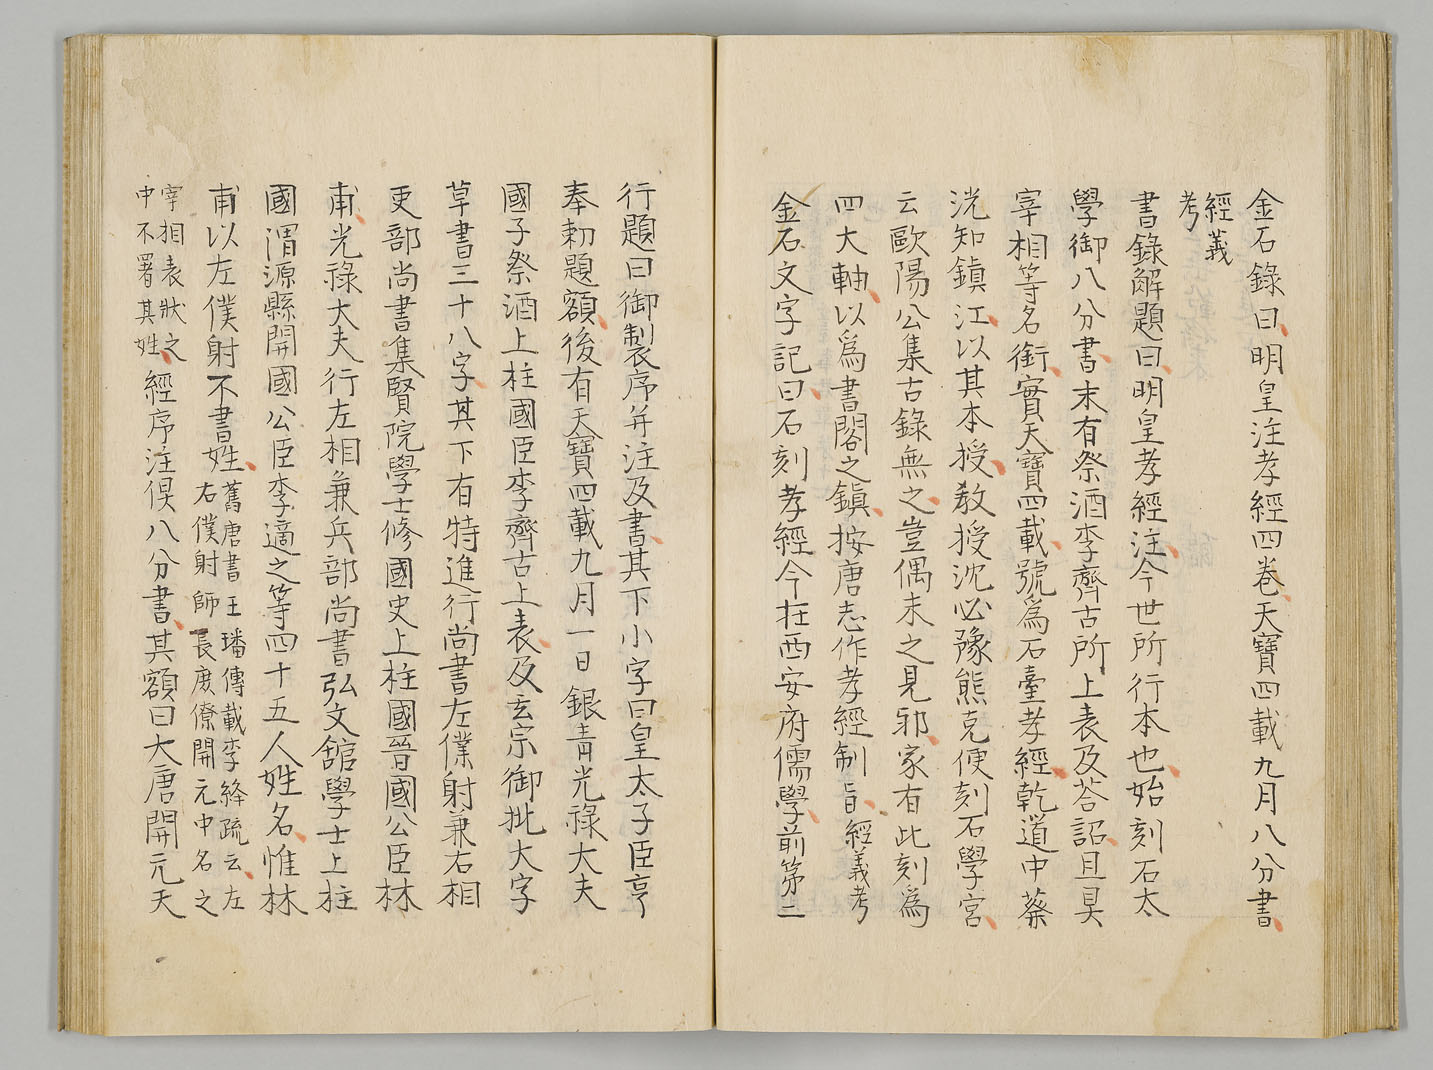 金石錄曰明皇注孝經四卷天寶四載九月八分書
經義
考
書錄解題曰明皇孝經注今世所行本也始刻石太
學御八分書末有祭酒李齊古所上表及荅詔且具
宰相等名銜實天寶四載號爲石臺孝經乾道中蔡
洸知鎮江以其本授教授沈必豫熊克便刻石學宮
云歐陽公集古錄無之豈偶未之見邪家有此刻爲
四大軸以爲書閣之鎮按唐志作孝經制旨經義考
金石文字記曰石刻孝經今在西安府儒學前第二
行題曰御製序并注及書其下小字曰皇太子臣亨
奉勑題額後有天寶四載九月一日銀青光祿大夫
國子祭酒上柱國臣李齊古上表及玄宗御批大字
草書三十八字其下有特進行尚書左僕射兼右相
吏部尚書集賢院學士修國史上柱國晉國公臣林
甫光祿大夫行左相兼兵部尚書弘文館學士上柱
國渭源縣開國公臣李適之等四十五人姓名惟林
甫以左僕射不書姓舊唐書王璠傳載李絳疏云左
右僕射師長庶僚開元中名之
宰相表狀之
中不署其姓經序注俱八分書其額曰大唐開元天